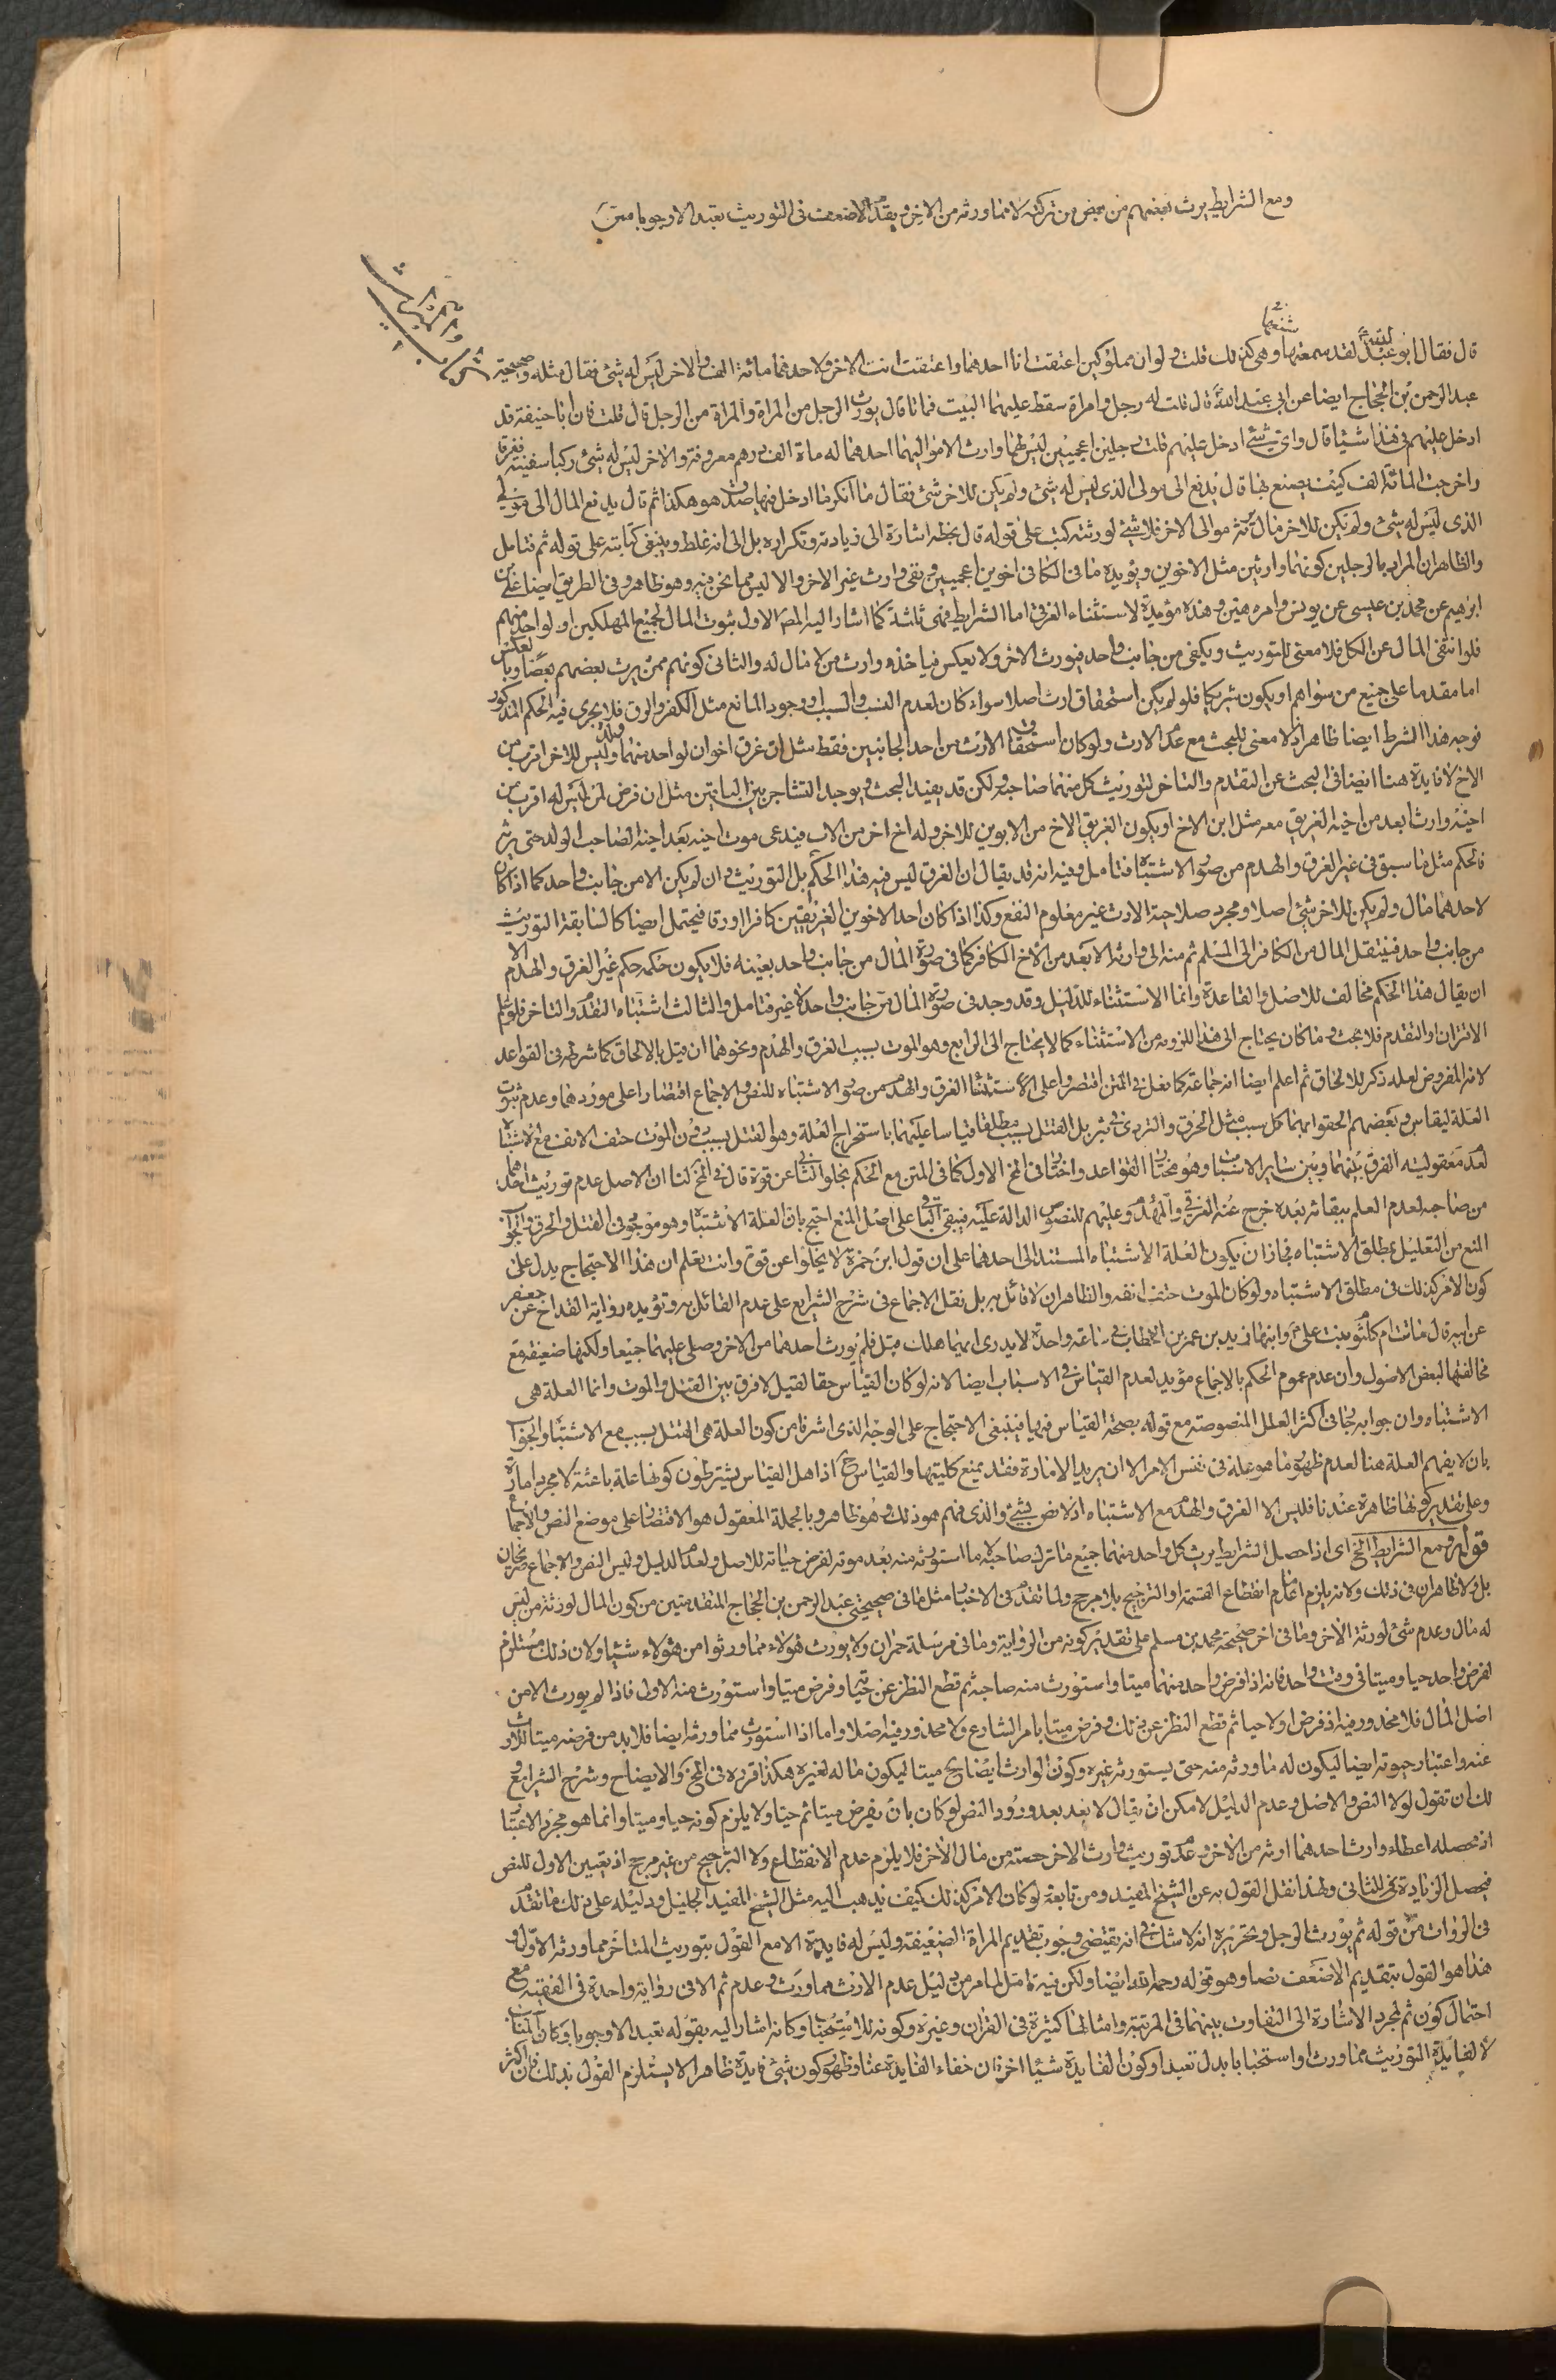 ومع الشرايط يرث بعضهم من بعض من تركته لا مما ورثه من الاخر ويقدم الاضعف في التوريث تعبدا لا وجوبا
قال فقال ابو عبد الله لقد سمعها وهي كذلك قلت ولو ان مملوكين اعتقت انا احدهما واعتقت انت الاخر ولاحدهما مائة الف والاخر ليس له شئ فقال مثله وصحيحة
عبد الرحمن بن الحجاج ايضا عن ابي عبد الله قال قلت له رجل وامراة سقط عليهما البيت فماتا قال يورث الرجل من المراة والمراة من الرجل قال قلت فان ابا حنيفة قد
ادخل عليهم في هذا شيئا قال واي شئ ادخل عليهم قلت رجلين اعجميين ليس لهما وارث الا مواليهما احدهما له ماة الف درهم معروفة والاخر ليس له شئ ركبا سفينة فغرقا
واخرجت المائة الف كيف يصنع بها قال يدفع الى مولى الذي ليس له شئ ولم يكن للاخر شئ فقال ما انكر ما ادخل فيها صدق هو هكذا ثم قال يدفع المال الى مولى
الذي ليس له شئ ولم يكن للاخر مال يرثه موالي الاخر فلا شئ لورثته كتب على قوله قال بخطه اشارة الى زيادته وتكراره بل الى انه غلط وينبغي كتابته على قوله ثم فتامل
والظاهر ان المراد بالرجلين كونهما وارثين مثل الاخوين ويؤيده ما في الكافي اخوين اعجميين وبقي وارث غير الاخر والا ليس مما نحن فيه وهو ظاهر وفي الطريق ايضا علي بن
ابرهيم عن محمد بن عيسى عن يونس وامره هين وهذه مؤيدة لاستثناء الغرقى اما الشرايط فهي ثلثة كما اشار اليه المص الاول ثبوت المال لجميع المهلكين او لواحد منهم
فلو انتفى المال عن الكل فلا معنى للتوريث ويكفي من جانب واحد فيورث الاخر ولا يعكس فياخذه وارث من لا مال له والثاني كونهم ممن يرث بعضهم بعضا وبالعكس
اما مقدما على جميع من سواهم او يكون شريكا فلو لم يكن استحقاق ارث اصلا سواء كان لعدم النسب والسبب او وجود المانع مثل الكفر والرق فلا يجري فيه الحكم المذكور
فوجه هذا الشرط ايضا ظاهر اذ لا معنى للبحث مع عدم الارث ولو كان استحقاق الارث من احد الجانبين فقط مثل ان غرق اخوان لواحد منهما ولد وليس للاخر اقرب من
الاخ لا فايدة هنا ايضا في البحث عن التقدم والتاخر لتوريث كل منهما صاحبه ولكن قد يفيد البحث ويوجد التشاجر بين الباقين مثل ان فرض لمن ليس له اقرب من
اخيه وارث ابعد من اخيه الغريق معه مثل ابن الاخ او يكون الغريق الاخ من الابوين للاخر وله اخ اخر من الاب فيدعى موت اخيه بعد اخيه الصاحب الولد حتى يرث
فالحكم مثل ما سبق في غير الغرق والهدم من صور الاشتباه فتامل وفيه انه قد يقال ان الغرق ليس فيه هذا الحكم بل التوريث وان لم يكن الا من جانب واحد كما اذا كان
لاحدهما مال ولم يكن للاخر شئ اصلا ومجرد صلاحية الارث غير معلوم النفع وكذا اذا كان احد الاخوين الغريقين كافرا او رقا فيحتمل ايضا كالسابقة التوريث
من جانب واحد فينتقل المال من الكافر الى المسلم ثم منه الى وارثه الابعد من الاخ الكافر كما في صورة المال من جانب واحد بعينه فلا يكون حكمه حكم غير الغرق والهدم الا
ان يقال هذا الحكم مخالف للاصل والقاعدة وانما الاستثناء للدليل وقد وجد في صورة المال من جانب واحد لا غير فتامل والثالث اشتباه التقدم والتاخر فلو علم
الاقتران والتقدم فلا بحث وما كان يحتاج الى هذا للزومه من الاستثناء كما لا يحتاج الى الرابع وهو الموت بسبب الغرق والهدم ونحوهما ان قيل بالالحاق كما شرطه في القواعد
لانه المفروض لعله ذكر للالحاق ثم اعلم ايضا انه جماعة كما نقل في المتن اقتصروا على الاستثناء الغرق والهدم من صور الاشتباه للنص والاجماع اقتصارا على موردهما وعدم ثبوت
العلة ليقاس وبعضهم الحقوا بهما كل سبب مثل الحرق والتردي في بئر بل القتل بسبب مطلقا قياسا عليهما باستخراج العلة وهو القتل بسبب دون الموت حتف الانف مع الاشتباه
لعدم معقولية الفرق بينهما وبين ساير الاسباب وهو مختار القواعد واختار في المخ الاول كما في المتن مع الحكم بخلو الثاني عن قوة قال في المخ لنا ان الاصل عدم توريث احدهما
من صاحبه لعدم العلم ببقائه بعده خرج عنه الغرقى والمهدوم عليهم للنصوص الدالة عليه فيبقى الباقي على اصل المنع احتج بان العلة الاشتباه وهو موجود في القتل والحرق والجواب
المنع من التعليل بمطلق الاشتباه فجاز ان يكون العلة الاشتباه المستند الى احدهما على ان قول ابن حمزة لا يخلوا عن قوة وانت تعلم ان هذا الاحتجاج يدل على
كون الامر كذلك في مطلق الاشتباه ولو كان الموت حتف انفه والظاهر ان لا قائل به بل نقل الاجماع في شرح الشرايع على عدم القائل به وتؤيده رواية القداح عن جعفر
عن ابيه قال ماتت ام كلثوم بنت علي وابنها زيد بن عمر بن الخطاب في ساعة واحدة لا يدرى ايهما هلك قبل فلم يورث احدهما من الاخر وصلى عليهما جميعا ولكنها ضعيفة مع
مخالفتها لبعض الاصول وان عدم عموم الحكم بالاجماع مؤيد لعدم القياس في الاسباب ايضا لانه لو كان القياس حقا لقيل لا فرق بين القتل والموت وانما العلة هي
الاشتباه وان جوابه يجئ في اكثر العلل المنصوصة مع قوله بصحة القياس فيها فينبغي الاحتجاج على الوجه الذي اشرنا من كون العلة هي القتل بسبب مع الاشتباه والجواب
بان لا يفهم العلة هنا لعدم ظهور ما هو علة في نفس الامر الا ان يريد الامارة فقد يمنع كليتها والقياس ح اذ اهل القياس يشترطون كونها علة باعثة لا مجرد امارة
وعلى تقدير كونها ظاهرة عندنا فليس الا الغرق والهدم مع الاشتباه اذ لا نص بشئ والذي فهم هو ذلك وهو ظاهر وبالجملة المعقول هو الاقتصار على موضع النص والاجماع
قوله ومع الشرايط الخ اي اذا حصل الشرايط يرث كل واحد منهما جميع ما ترك صاحبه لا ما استورثه منه بعد موته لفرض حياته للاصل ولعدم الدليل وليس النص والاجماع صريحان
بل ولا ظاهران في ذلك ولانه يلزم اما عدم انقطاع القسمة او الترجيح بلا مرجح ولما تقدم في الاخبار مثل ما في صحيحتي عبد الرحمن بن الحجاج المتقدمتين من كون المال لورثة من ليس
له مال وعدم شئ لورثة الاخر وما في اخر صحيحة محمد بن مسلم على تقدير كونه من الرواية وما في مرسلة حمران ولا يورث هؤلاء مما ورثوا من هؤلاء شيئا ولان ذلك مستلزم
لفرض واحد حيا وميتا في وقت واحد فانه اذا فرض واحد منهما ميتا واستورث منه صاحبه ثم قطع النظر عن حيوته وفرض ميتا واستورث منه الاول فاذا لم يورث الا من
اصل المال فلا محذور فيه اذ فرض اولا حيا ثم قطع النظر عن ذلك وفرض ميتا بامر الشارع ولا محذور فيه اصلا واما اذا استورث مما ورثه ايضا فلا بد من فرضه ميتا للارث
عنه واعتبار حيوته ايضا ليكون له ما ورثه منه حتى يستورثه غيره وكون الوارث ايضا ح ميتا ليكون ماله لغيره هكذا قرره في المخ والايضاح وشرح الشرايع و
لك ان تقول لولا النص والاصل وعدم الدليل لامكن ان يقال لا بعد بعد ورود النص لو كان بان يفرض ميتا ثم حيا ولا يلزم كونه حيا وميتا وانما هو مجرد الاعتبار
اذ محصله اعطاء وارث احدهما ارثه من الاخر وعدم توريث وارث الاخر حصته من مال الاخر فلا يلزم عدم الانقطاع ولا الترجيح من غير مرجح اذ تعيين الاول للنص
فيحصل الزيادة للثاني ولهذا نقل القول به عن الشيخ المفيد ومن تابعه لو كان الامر كذلك كيف يذهب اليه مثل الشيخ المفيد الجليل ودليله على ذلك ما تقدم
في الروايات من قوله ثم يورث الرجل وتحريره انه لا شك في انه يقتضي وجوب تقديم المراة الضعيفة وليس له فايدة الا مع القول بتوريث المتاخر مما ورثه الاول و
هذا هو القول بتقديم الاضعف نصا وهو قوله رحمه الله ايضا ولكن فيه تامل لما مر من دليل عدم الارث مما ورث وعدم ثم الا في رواية واحدة في الفقيه مع
احتمال كون ثم لمجرد الاشارة الى التفاوت بينهما في المرتبة وامثالها كثيرة في القران وغيره وكونه للاستحباب وكانه اشار اليه بقوله تعبدا لا وجوبا وكان المناسب
لا لفايدة التوريث مما ورث او استحبابا بدل تعبدا وكون الفايدة شيئا اخر فان خفاء الفايدة عنا وظهور كون شئ فايدة ظاهرا لا يستلزم القول بذلك فان اكثر